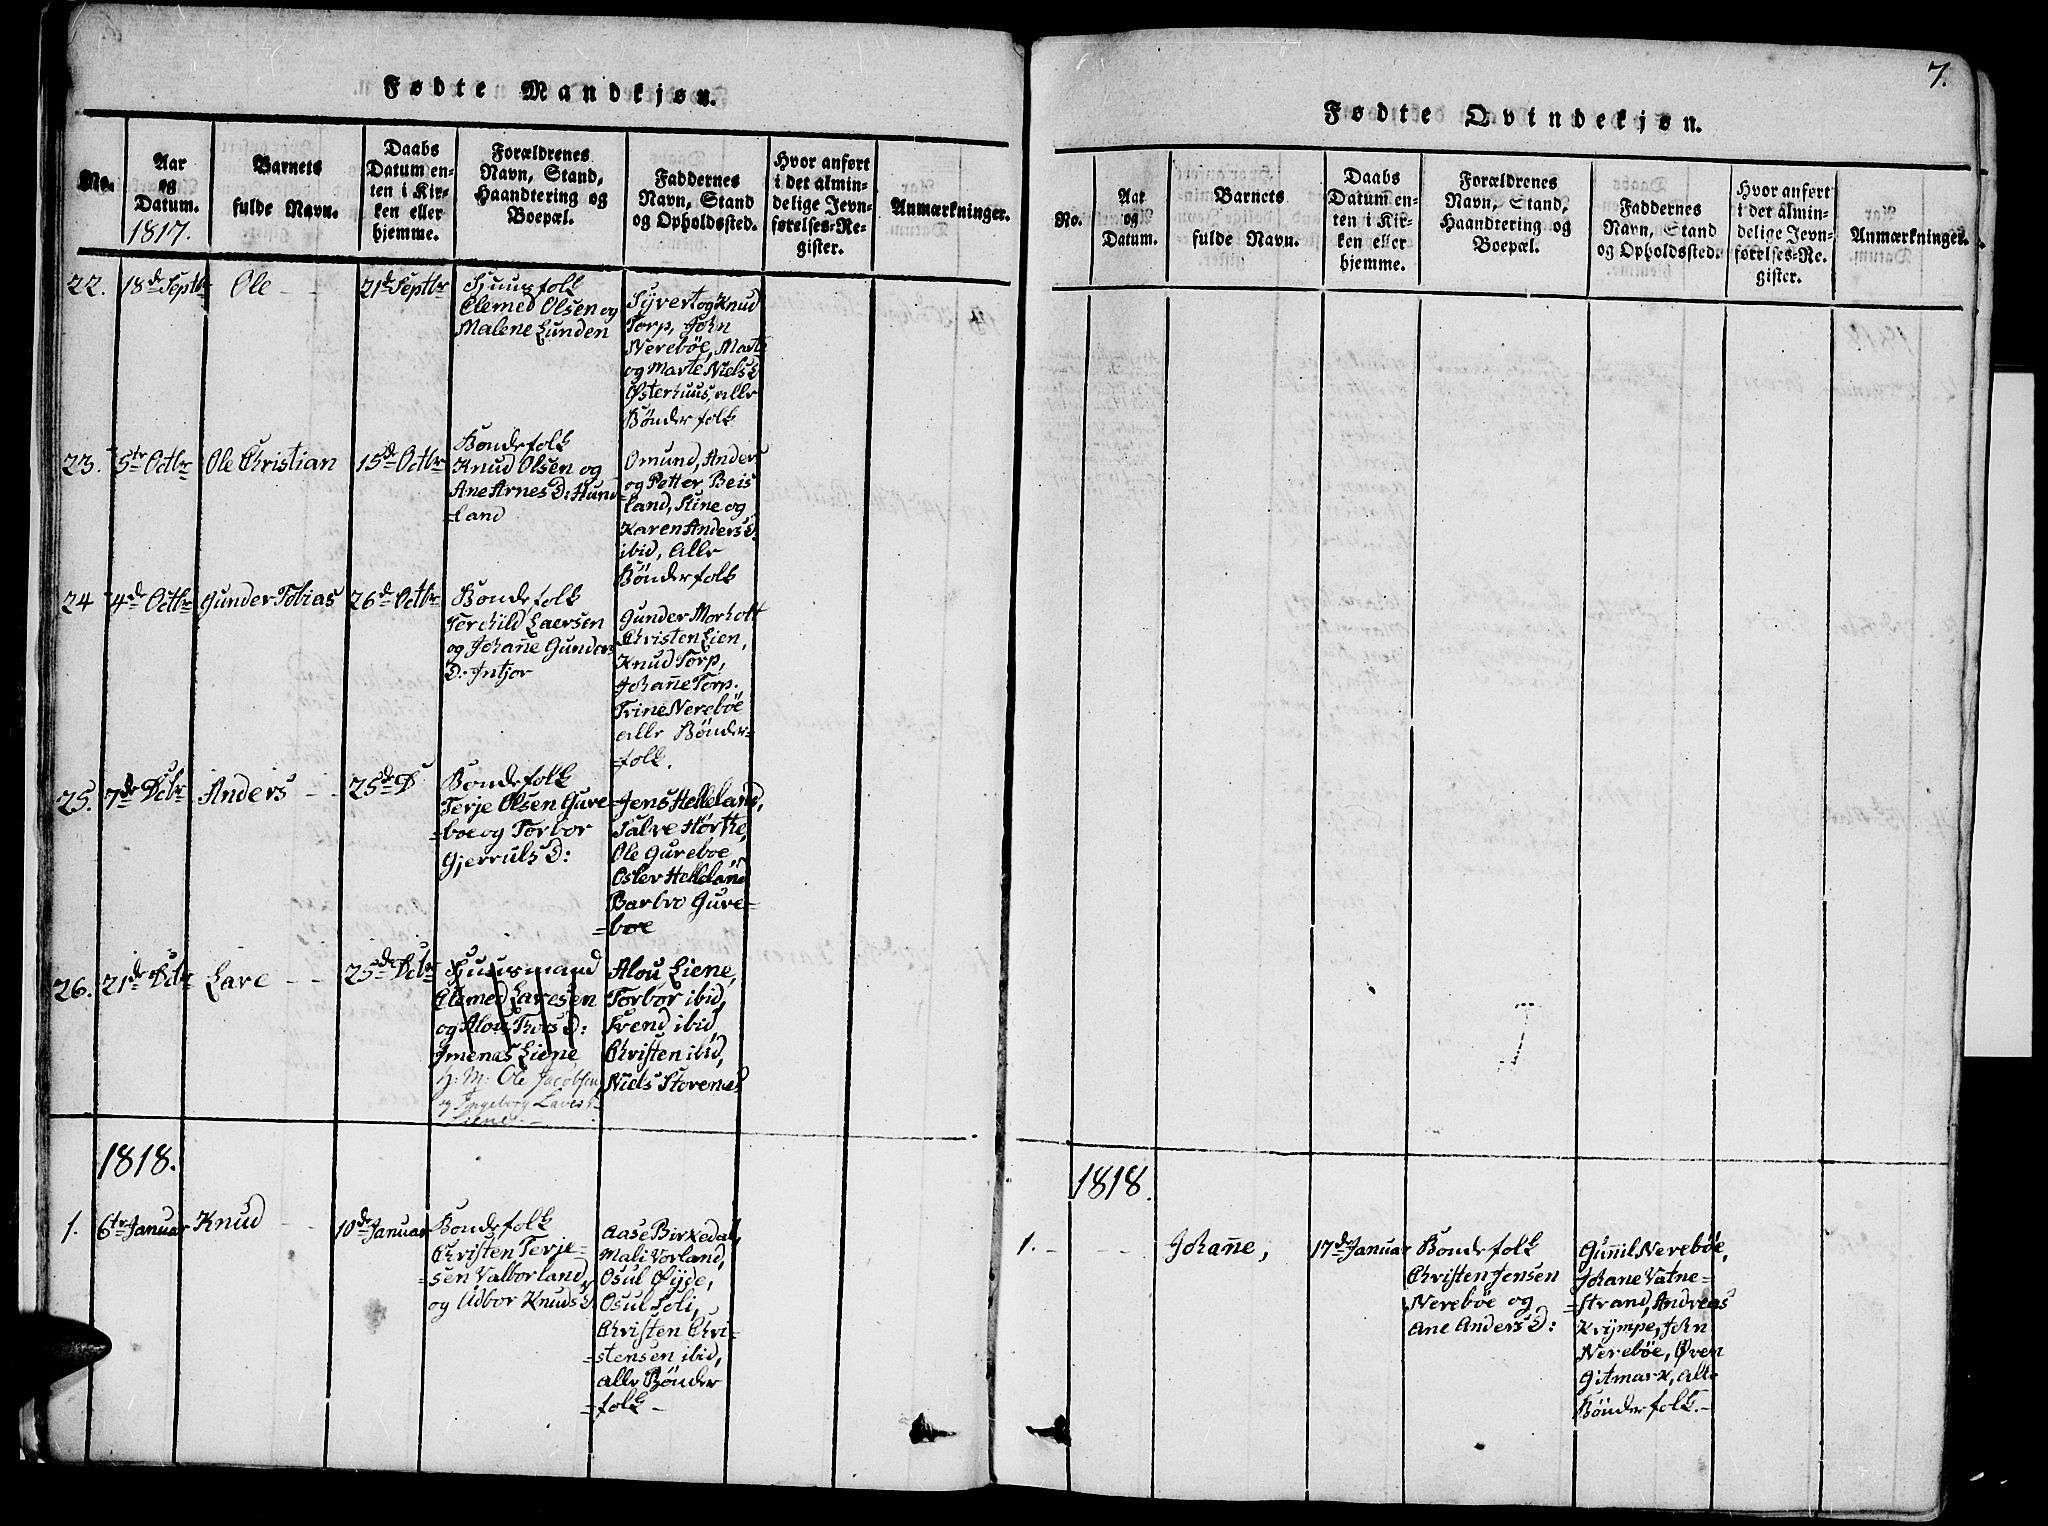 Fødte Mandkjøn.
No.
Aar
og
Datum.
1817.
Barnets
fulde Navn.
Daabs
Datum en-
ten i Kir-
ken eller
hjemme.
Forældrenes
Navn, Stand,
Haandtering og
Boepæl.
Faddernes
Navn, Stand
og Opholdssted.
Hvor anført
i det almin-
delige Jevn-
førelses-Re-
gister.
Anmærkninger.
22.
18de Septbr
Ole
21de Septbr
Huusfolk
Clemed Olsen og
Malene Lunden
Syvert og Knud
Torp, John
Nerebøe, Marte
og Marte Niels D
Østerhuus, alle
Bønderfolk
23.
5te Octbr
Ole Christian
15de Octbr
Bondefolk
Knud Olsen og
Ane Arnes D: Hund
=land
Omund, Anders
og Petter Beis
=land, Stine og
Karen Anders D.
ibid, Alle
Bønderfolk
24
4de Octbr
Gunder Tobias
26de Octbr
Bondefolk
Torchild Laersen
og Johan̅e Gunders
D. Intjor
Gunder Morholt
Christen Lien,
Knud Torp,
Johan̅e Torp.
Trine Nerebøe
alle Bønder=
=folk.
25.
7de Dcbr
Anders
25de D
Bondefolk
Terje Olsen Gure
=boe og Torbor
Gjerruls D:
Jens Helleland,
Salve Hørthe,
Ole Gureboe
Oslev Helleland
Barbro Gure=
=boe
26.
21de Dcbr
Lare
25de Dcbr
Huusmand
Clemed Laresen
og Alou Thors D:
Imenæs Liene
H: M: Ole Jacobsen
og Ingeborg Lares D
Liene.
Alou Liene,
Torbor ibid,
Svend ibid,
Christen ibid,
Niels Storenæs
1818.
1.
6te Januar
Knud
10de Januar
Bondefolk
Christen Terje=
=sen Valborland,
og Udbor Knuds D
Aase Birkedal,
Mali Vorland,
Osul Øyde,
Osul Soli,
Christen Chri=
=stensen ibid,
alle Bønder
=folk
7.
Fødte Qvindekjøn.
No.
Aar
og
Datum.
Barnets
fulde Navn.
Daabs
Datum en-
ten i Kir-
ken eller
hjemme.
Forældrenes
Navn, Stand,
Haandtering og
Boepæl.
Faddernes
Navn, Stand
og Opholdssted.
Hvor anført
i det almin-
delige Jevn-
førelses-Re-
gister.
Anmærkninger.
1818.
1.
Johan̅e,
17de Januar
Bondefolk
Christen Jensen
Nerebøe og
Ane Anders D:
Gun̅il Nerebøe,
Johane Vatne=
=strand, Andreas
Krympe, John
Nerebøe, Øven
Gitmark, Alle
Bønderfolk.